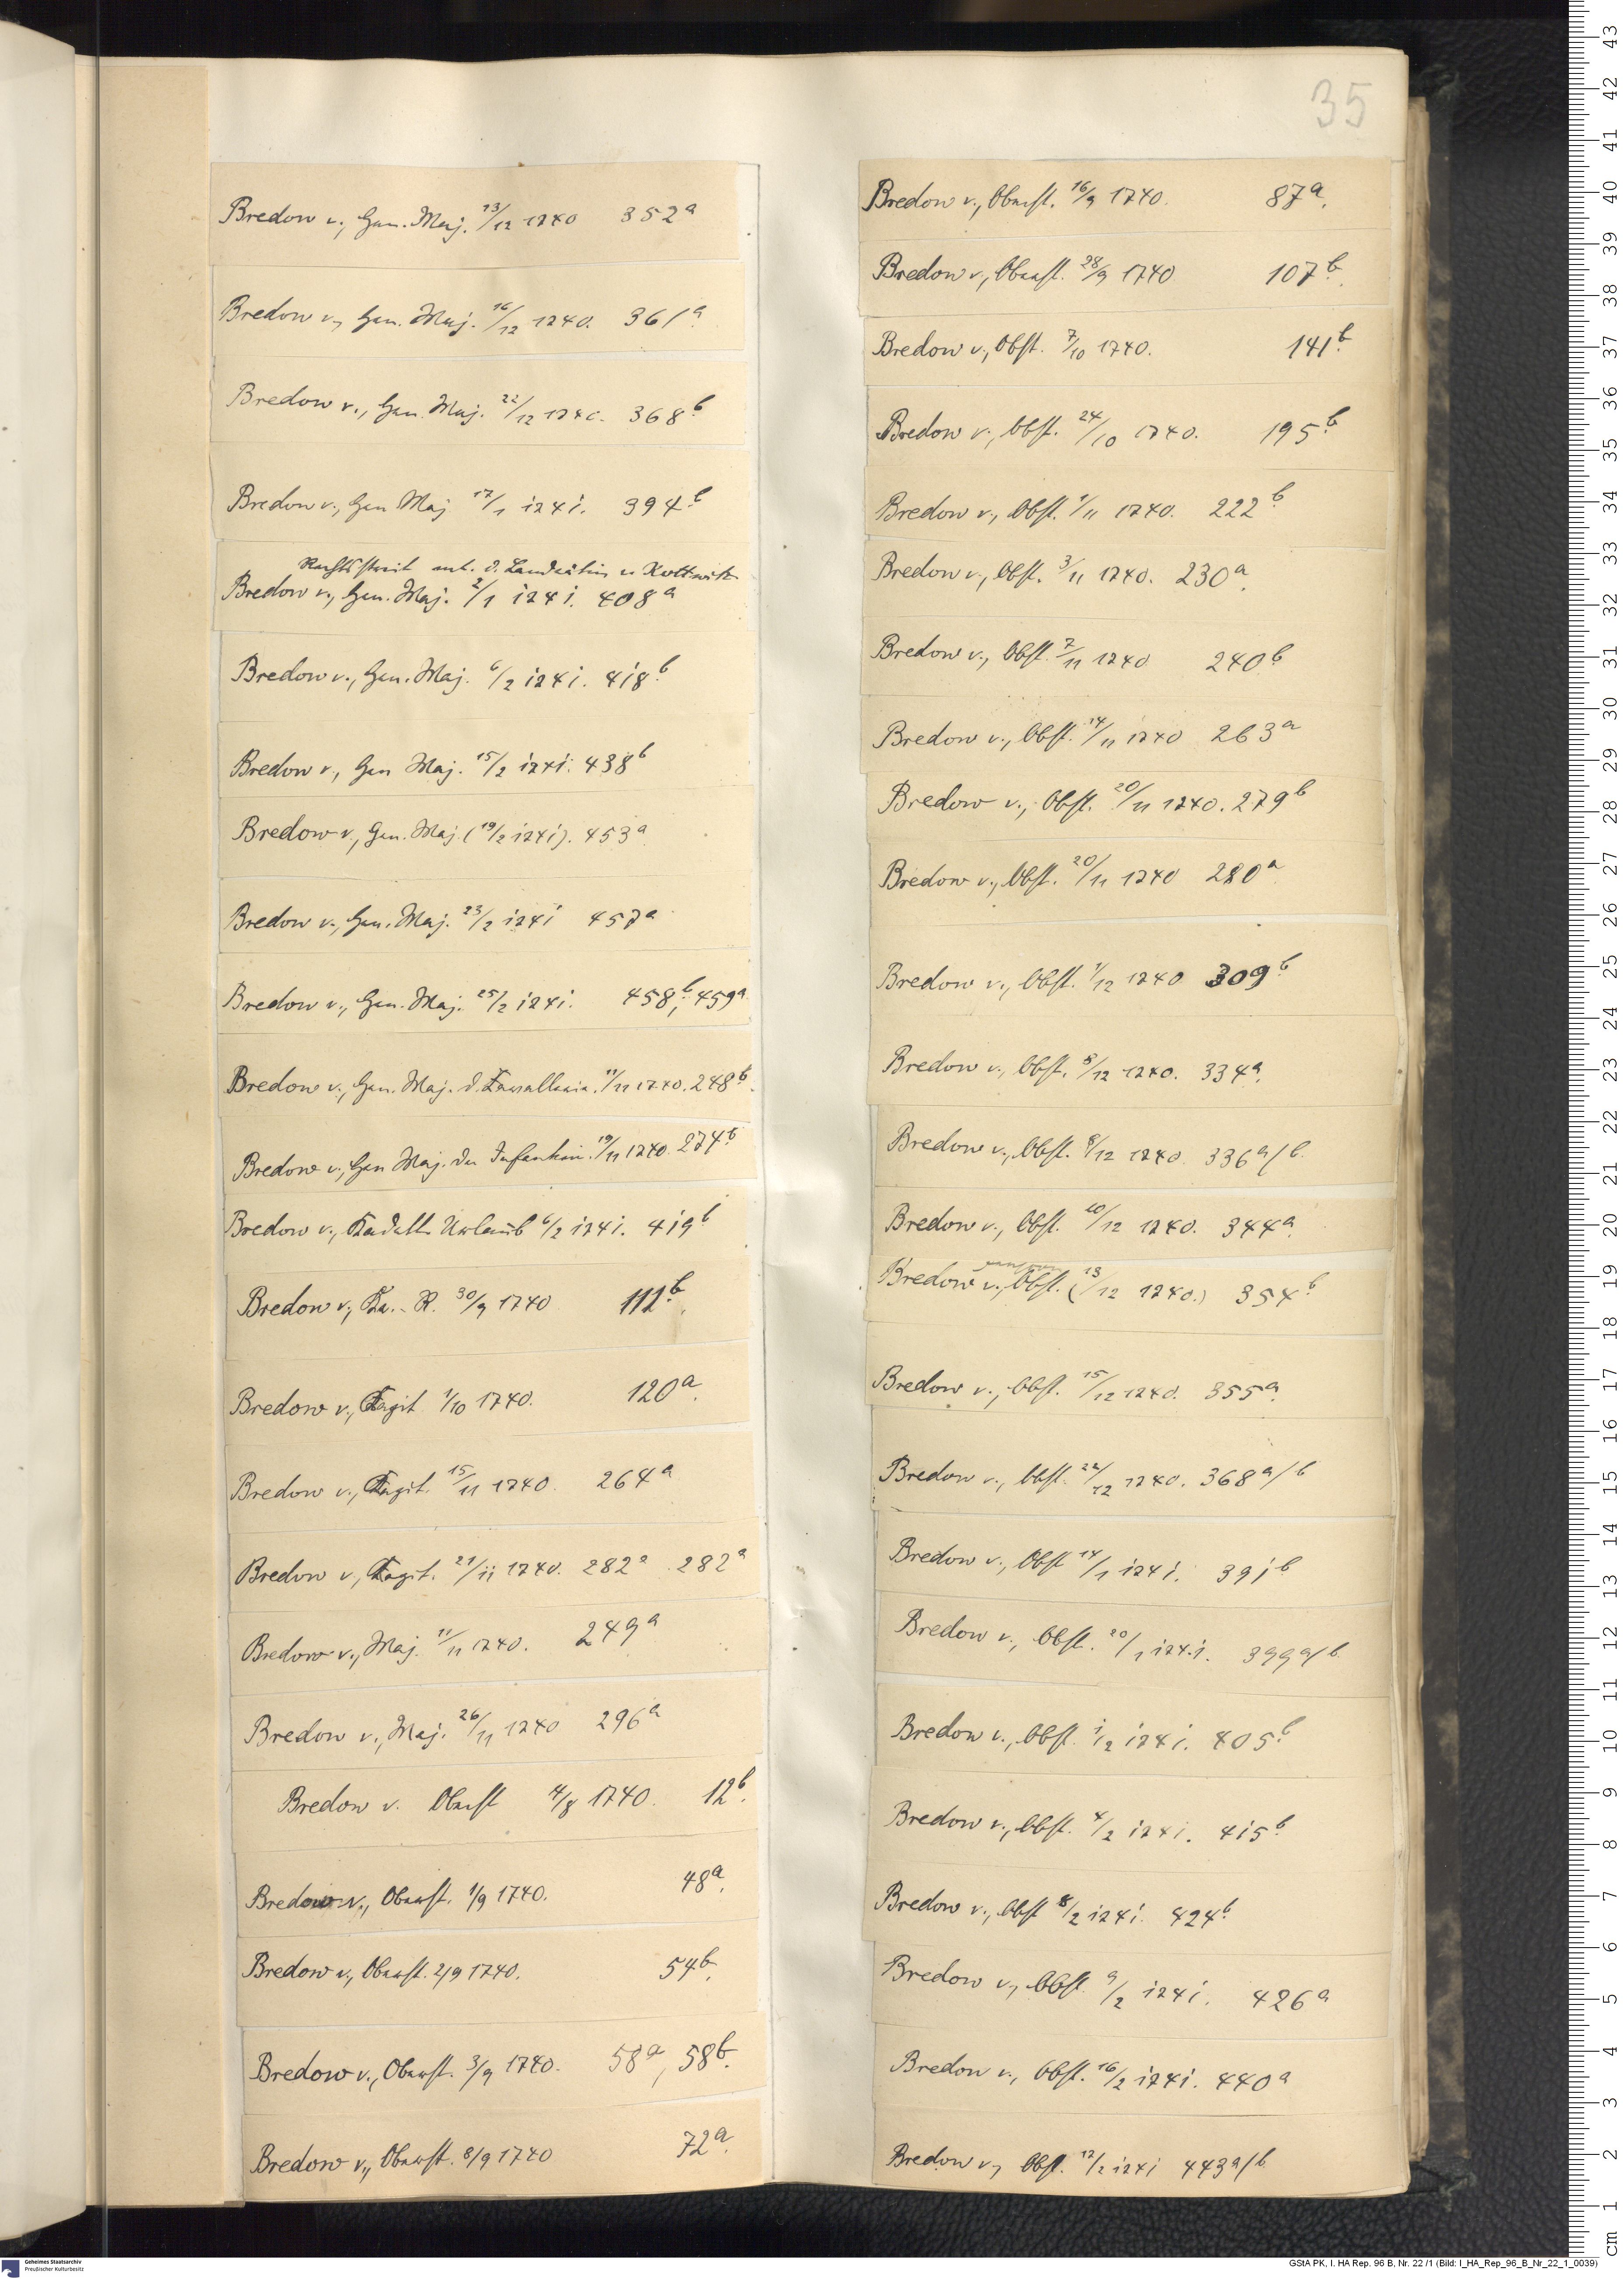 35
Bredow v., Gen. Maj. 13/12 1740 352a
Bredow v., Gen. Maj. 16/12 1740. 361a.
Bredow v., Gen. Maj. 22/12 1740. 368b
Bredow v., Gen Maj 17/1 1741. 394b.
Rechtsstreit mit d. Landrätin v Kottwitz
Bredow v., Gen. Maj. 2/1 1741. 408a
Bredow v., Gen. Maj. 6/2 1741. 418b.
Bredow v., Gen Maj. 15/2 1741. 438b
Bredow v., Gen. Maj. (19/2 1741). 453a
Bredow v., Gen. Maj. 23/2 1741 457a
Bredow v., Gen. Maj. 25/2 1741. 458b., 459a.
Bredow v., Gen. Maj. d. Kavallerie. 11/11 1740. 248b.
Bredow v., Gen Maj. der Infanterie. 19/11 1740. 274b.
Bredow v., Kadett Urlaub 6/2 1741. 419b
Bredow v., R. 30/9 1740 111b.
Bredow v., Kapit 1/10 1740. 120a.
Bredow v., Kapit. 15/11 1740. 264a
Bredow v., Kapit. 21/11 1740. 282a 282a
Bredow v., Maj. 11/11 1740. 249a
Bredow v., Maj. 26/11 1740 296a
Bredow v. Oberst 4/8 1740. 12b.
Bredow v., Oberst. 1/9 1740. 48a.
Bredow v., Oberst. 2/9 1740. 54b.
Bredow v., Oberst. 3/9 1740. 58a, 58b.
Bredow v., Oberst. 8/9 1740 72a.
Bredow v., Oberst. 16/9 1740. 87a.
Bredow v., Oberst. 28/9 1740 107b.
Bredow v., Obst. 7/10 1740. 141b.
Bredow v., Obst. 24/10 1740. 195b.
Bredow v., Obst. 1/11 1740. 222b
Bredow v., Obst. 3/11 1740. 230a.
Bredow v., Obst. 7/11 1740 240b
Bredow v., Obst. 14/11 1740 263a
Bredow v., Obst. 20/11 1740. 279b
Bredow v., Obst. 20/11 1740 280a
Bredow v., Obst. 1/12 1740 309b
Bredow v., Obst. 8/12 1740. 334a.
Bredow v., Obst. 8/12 1740. 336a/b.
Bredow v., Obst. 10/12 1740. 344a.
Bredow v., Obst. (13/12 1740.) 354b.
Bredow v., Obst. 15/12 1740. 355a.
Bredow v., Obst. 22/12 1740. 368a/b
Bredow v., Obst 14/1 1741. 391b
Bredow v., Obst. 20/1 1741. 399a/b.
Bredow v., Obst. 1/2 1741. 405b.
Bredow v., Obst. 4/2 1741. 415b.
Bredow v., Obst 8/2 1741. 424b.
Bredow v., Obst. 9/2 1741. 426a
Bredow v., Obst. 16/2 1741. 440a
Bredow v., Obst. 17/2 1741 443a/b.
Geheimes Staatsarchiv
Preußischer Kulturbesitz
GStA PK, I. HA Rep. 96 B, Nr. 22 /1 (Bild: I_HA_Rep_96_B_Nr_22_1_0039)
cm 1 2 3 4 5 6 7 8 9 10 11 12 13 14 15 16 17 18 19 20 21 22 23 24 25 26 27 28 29 30 31 32 33 34 35 36 37 38 39 40 41 42 43